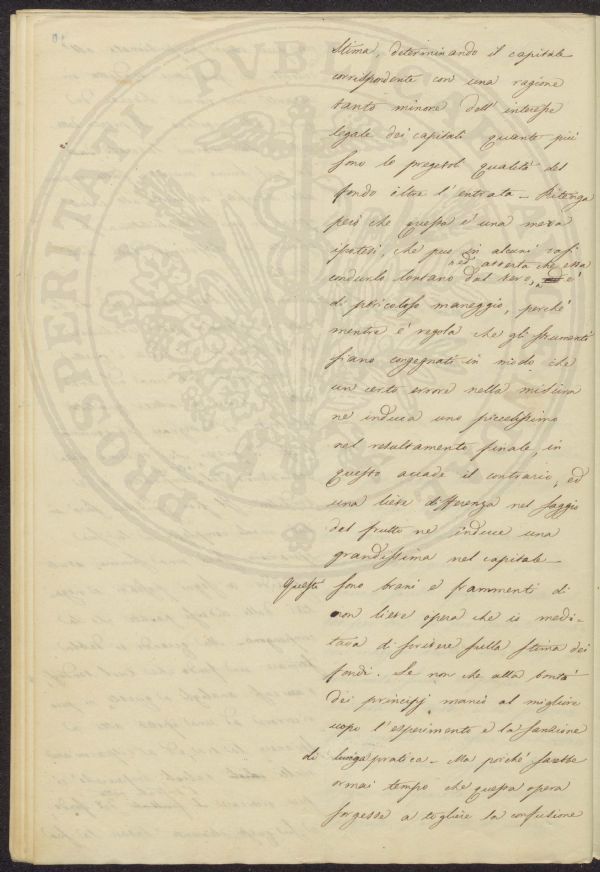 stima, determinando il capitale
corrispondente con una ragione
tanto minore dell'interesse
legale dei capitali quanto più
sono le pregevoli qualità del
fondo oltre l'entrata – Ritenga
però che questa è una mera
ipotesi, che può in alcuni casi
ed avverta che essa
condurlo lontano dal vero, è
di pericoloso maneggio, perché
mentre è regola che gli strumenti
siano congegnati in modo che
un certo errore nella misura
ne induca uno piccolissimo
nel resultamento finale, in
questo accade il contrario, ed
una lieve differenza nel saggio
del frutto ne induce una
grandissima nel capitale –
Questi sono brani e frammenti di
non lieve opera che io medi-
tava di scrivere sulla stima dei
fondi. Se non che alla bontà
dei principj mancò al migliore
uopo l'esperimento e la sanzione
di lunga pratica – Ma poiché sarebbe
ormai tempo che questa opera
sorgesse a togliere la confusione
PROSPERITATI PUBLICAE